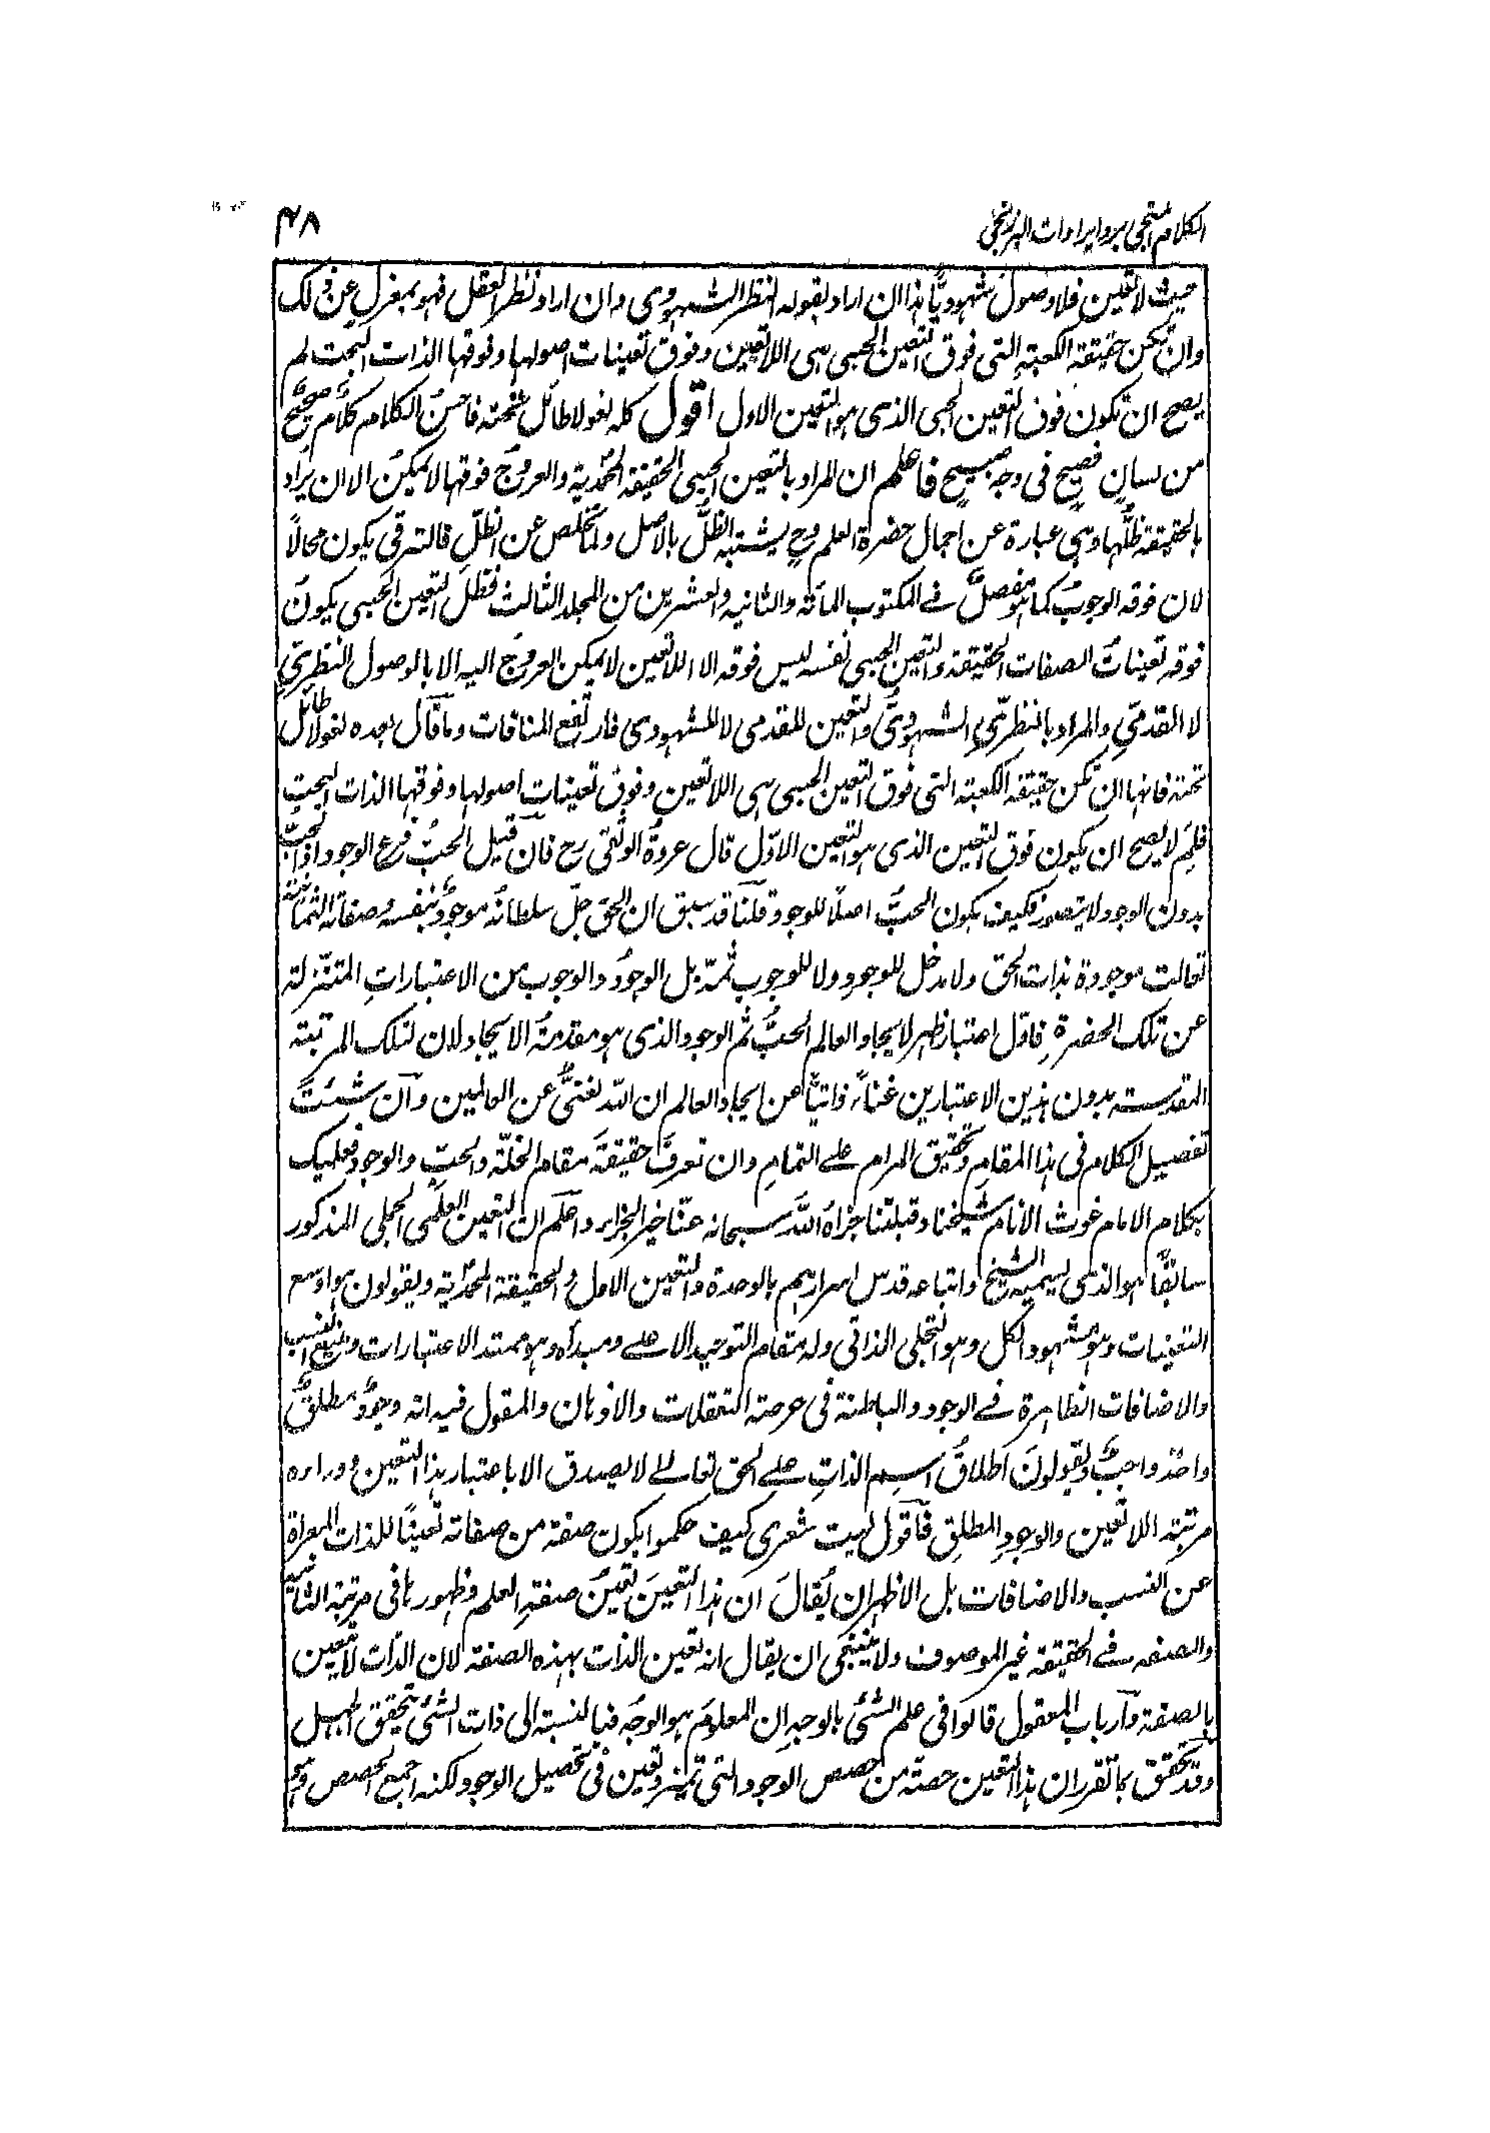 الكلام المنجي برد ايرادات البرزنجي
۴۸
حيث لا تعين فلا وصول شهوديًّا هذا ان اراد بقوله النظر الشهودي وان اراد نظر العقل فهو بمعزلٍ عن ذلك
وان تكن حقيقة الكعبة التي فوق التعين الحبي هي اللاتعين وفوق تعينات اصولها وفوقها الذات البحت لم
يصح ان تكون فوق التعين الحبي الذي هو التعين الاول اقول كله لغو لا طائل تحته فاحسن الكلام كلامٌ صحيحٌ
من لسانٍ فصيحٍ في وجه صبيحٍ فاعلم ان المراد بالتعين الحبي الحقيقة المحمدية والعروج فوقها لا يمكن الا ان يراد
بالحقيقة ظلُّها وهي عبارة عن اجمال حضرة العلم وح يشتبه الظلُّ بالاصل ولم تخلص عن الظلّ فالترقي يكون محالاً
لان فوقه الوجوب كما هو مفصلٌ في المكتوب المائة والثانية والعشرين من المجلد الثالث فظل التعين الحبي يكون
فوقه تعينات الصفات الحقيقة والتعين الحبي نفسه ليس فوقه الا اللاتعين لا يمكن العروج اليه الا بالوصول النظريِّ
لا القدميِّ والمراد بالنظريِّ الشهوديُّ والتعين للقدمي لا للشهودي فارتفع المنافات وما قال بعده لغو لا طائل
تحته فانها ان تكن حقيقة الكعبة التي فوق التعين الحبي هي اللاتعين وفوق تعينات اصولها وفوقها الذات البحت
فلِمَ لا يصح ان يكون فوق التعين الذي هو التعين الاوّل قال عروة الوثقى رح فان قيل الحبّ فرع الوجود اذ الحبّ
بدون الوجود لا يتصور فكيف يكون الحبُّ اصلًا للوجود قلنا قد سبق ان الحق جلّ سلطانه موجودٌ بنفسه وصفاته الثمانية
تعالت موجودة بذات الحق ولا دخل للوجود ولا للوجوب ثمّه بل الوجود والوجوب من الاعتباراتِ المتنزلة
عن تلك الحضرةِ فاول اعتبار ظهر لايجاد العالم الحبُّ ثم الوجود الذي هو مقدمة الايجاد لان لتلك المرتبة
المقدسة بدون هذين الاعتبارين غناءً ذاتيًّا عن ايجاد العالم ان الله لغنيٌّ عن العالمين وان شئت
تفصيل الكلام في هذا المقامِ وتحقيق المرام على التمامِ وان تعرف حقيقةَ مقام الخلّة والحبِّ والوجود فعليك
بكلام الامام غوث الانام شيخنا وقبلتنا جزاه الله سبحانه عنّا خير الجزاء واعلم ان التعين العلمي الجملي المذكور
سابقًا هو الذي يسميه الشيخ واتباعه قدس اسرارهم بالوحدة والتعين الاول والحقيقة المحمدّية ويقولون هو اوسع
التعينات وهو مشهود الكل وهو التجلي الذاتي وله مقام التوحيد الاعلى ومبدأه وهو ممتد الاعتبارات ومنبع النسب
والاضافات الظاهرة في الوجود والباطنة في عرصة التعقلات والاذهان والمقول فيه انه وجودٌ مطلقٌ
واحدٌ واجبٌ ويقولونَ اطلاقُ اسم الذاتِ على الحق تعالى لا يصدق الا باعتبار هذا التعين ووراءه
مرتبة اللاتعين والوجودِ المطلقِ فاقول ليت شعري كيف حكموا بكون صفة من صفاته تعينًا للذات المعراة
عن النسب والاضافات بل الاظهر ان يُقالَ ان هذا التعينَ تعينُ صفة العلم وظهورها في مرتبة الثانية
والصفة في الحقيقة غير الموصوف ولا ينبغي ان يقال انه تعين الذات بهذه الصفة لان الذّات لا تتعين
بالصفة وارباب المعقول قالوا في علم الشئ بالوجه ان المعلوم هو الوجه فبالنسبة الى ذات الشئ تحقق الجهل
وقد تحقق بما تقرر ان هذا التعين حصة من حصص الوجود التي تميز وتعين في تحصيل الوجود لكنه اجمع الحصص وهو